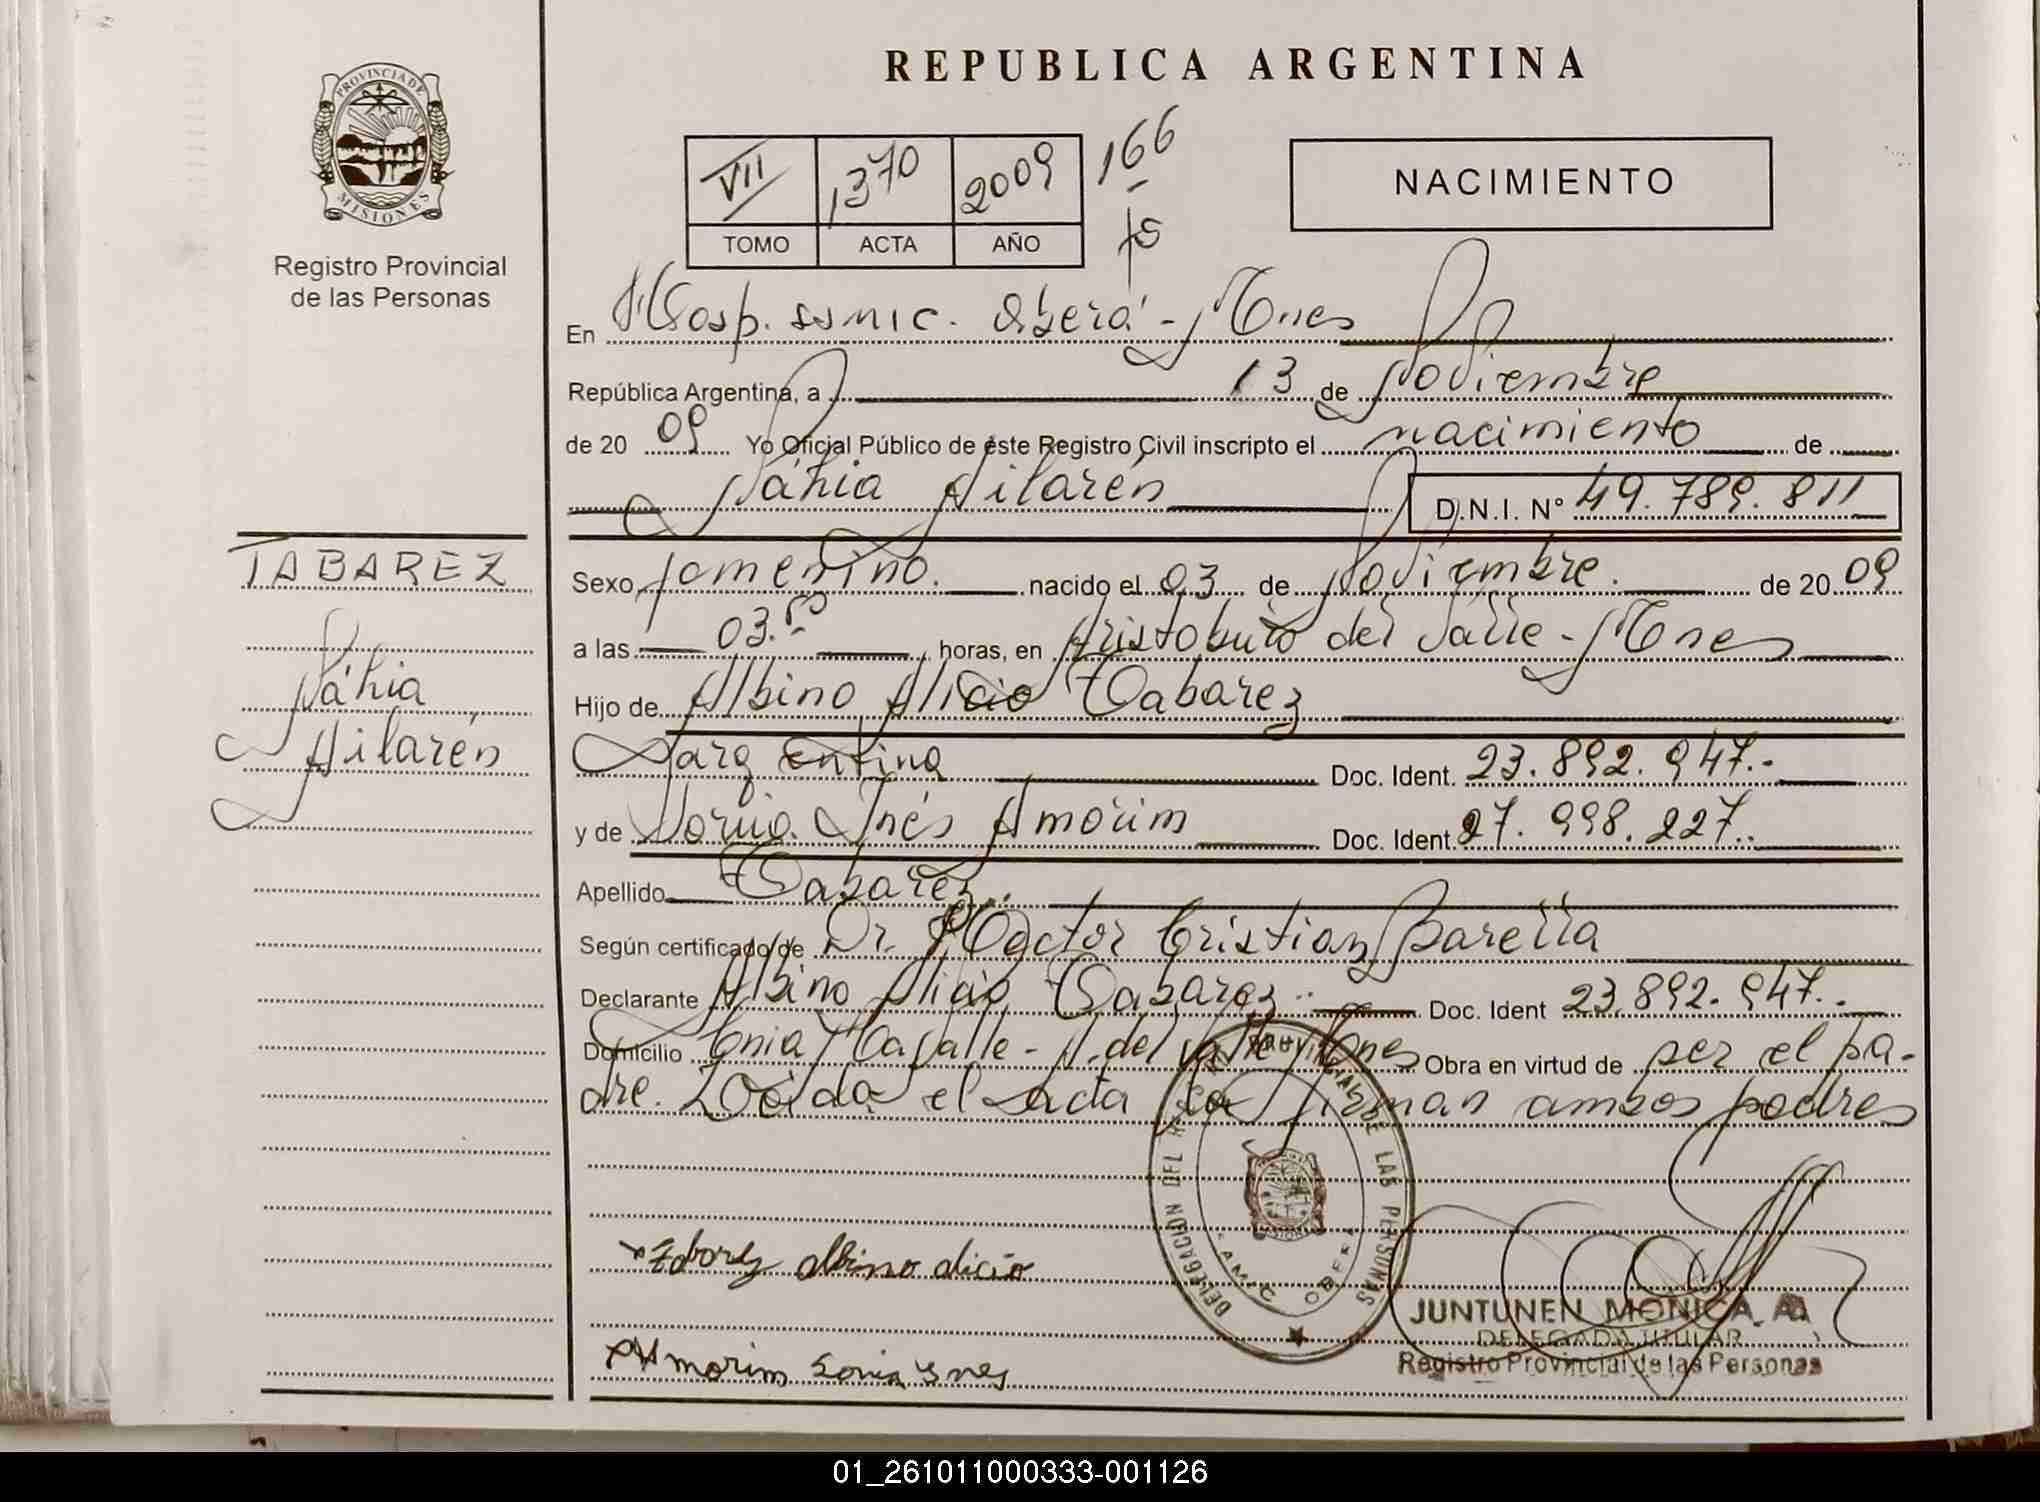 PROVINCIA DE
MISIONES
Registro Provincial
de las Personas
REPUBLICA ARGENTINA
VII 1370 2009 166
TOMO ACTA AÑO fº
NACIMIENTO
En Hosp. Oberá - Mnes
República Argentina, a 13 de Noviembre
de 20 09 Yo Oficial Público de este Registro Civil inscripto el nacimiento de
Náhia Ailarén D.N.I. Nº 49.789.811
TABAREZ
Náhia
Ailarén
Sexo femenino. nacido el 03 de Noviembre. de 20 09
a las 03.50 horas, en Aristobulo del Valle - Mnes
Hijo de Albino Alicio Tabarez
argentina Doc. Ident. 23.892.947.-
y de Sonia Inés Amorim Doc. Ident. 27.998.227..
Apellido Tabarez.
Según certificado de Dr. Hector Cristian
Declarante Albino Alicio Tabarez.. Doc. Ident 23.892.947..
Domicilio A. del Valle Mnes Obra en virtud de ser el pa-
dre. Leida el acta la firman ambos padres
DELEGACION DEL REGISTRO PROVINCIAL DE LAS PERSONAS
OBERA
Tabarez albino alicio
Amorim Sonia Ines
JUNTUNEN MONICA A.
DELEGADA TITULAR
Registro Provincial de las Personas
01_261011000333-001126